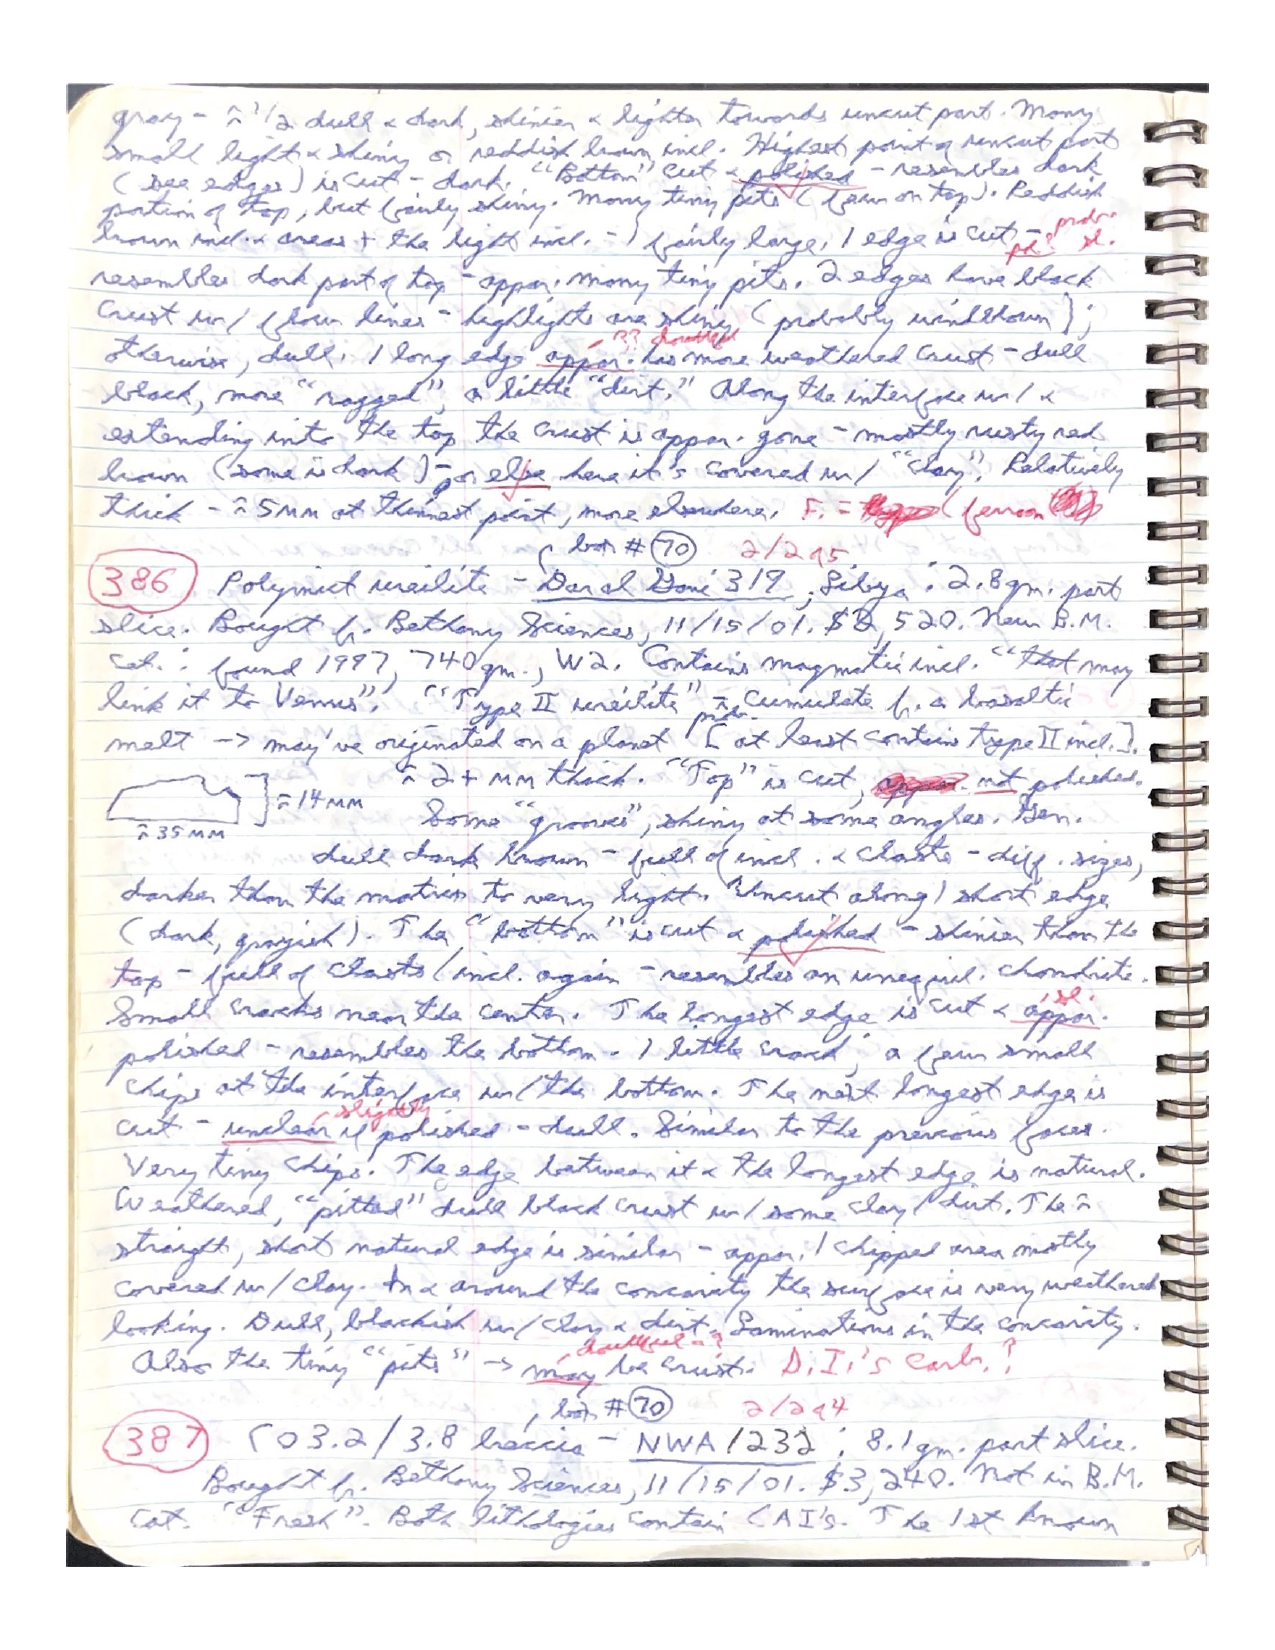 gray - ≈ 1/2 dull & dark, shinier & lighter towards uncut part. Many
small light & shiny or reddish brown incl. Highest point of uncut part
(see edges) is cut - dark. "Bottom" cut & polished - resembles dark
portion of top, but fairly shiny. Many tiny pits (few on top). Reddish
brown incl. & areas + the light incl. - 1 fairly large. 1 edge is cut - prob. sl. pol?
resembles dark part of top - appar. many tiny pits. 2 edges have black
crust w/ flow lines - highlights are shiny (probably windblown);
otherwise, dull. 1 long edge appar. ?? doubtful has more weathered crust - dull
black, more "ragged", a little "dirt." Along the interface w/ &
extending into the top the crust is appar. gone - mostly rusty red
brown (some is dark) - or else here it's covered w/ "clay". Relatively
thick - ≈ 5 mm at thinnest point, more elsewhere. F. = (ferroan
box # 70 2/2 95
386 Polymict ureilite - Dar al Gani 319, Libya: 2.8 gm. part
slice. Bought fr. Bethany Sciences, 11/15/01. $2,520. New B.M.
cat.: found 1997, 740 gm., W2. Contains magmatic incl. "that may
link it to Venus". "Type II ureilite" - prob. cumulate fr. a basaltic
melt -> may've originated on a planet [at least contain type II incl.].
≈ 14 mm ≈ 2+ mm thick. "Top" is cut, not polished.
≈ 35 mm Some "grooves", shiny at some angles. Gen.
dull dark brown - full of incl. & clasts - diff. sizes,
darker than the matrix to very light. Uncut along 1 short edge
(dark, grayish). The "bottom" is cut & polished - shinier than the
top - full of clasts/incl. again - resembles an unequil. chondrite.
Small cracks near the center. The longest edge is cut & appar. sl.
polished - resembles the bottom. 1 little crack, a few small
chips at the interface w/ the bottom. The next longest edge is
cut - unclear if slightly polished - dull. Similar to the previous face.
Very tiny chips. The edge between it & the longest edge is natural.
Weathered, "pitted" dull black crust w/ some clay/dirt. The ≈
straight, short natural edge is similar - appar. 1 chipped area mostly
covered w/ clay. In & around the concavity the surface is very weathered
looking. Dull, blackish w/ clay & dirt. Laminations in the concavity.
Also the tiny "pits" -> may doubtful - ? be crust. D.I.'s carb.?
box # 70 2/2 94
387 CO3.2/3.8 breccia - NWA 1232; 8.1 gm. part slice.
Bought fr. Bethany Sciences, 11/15/01. $3,240. Not in B.M.
Cat. "Fresh". Both lithologies contain CAI's. The 1st known